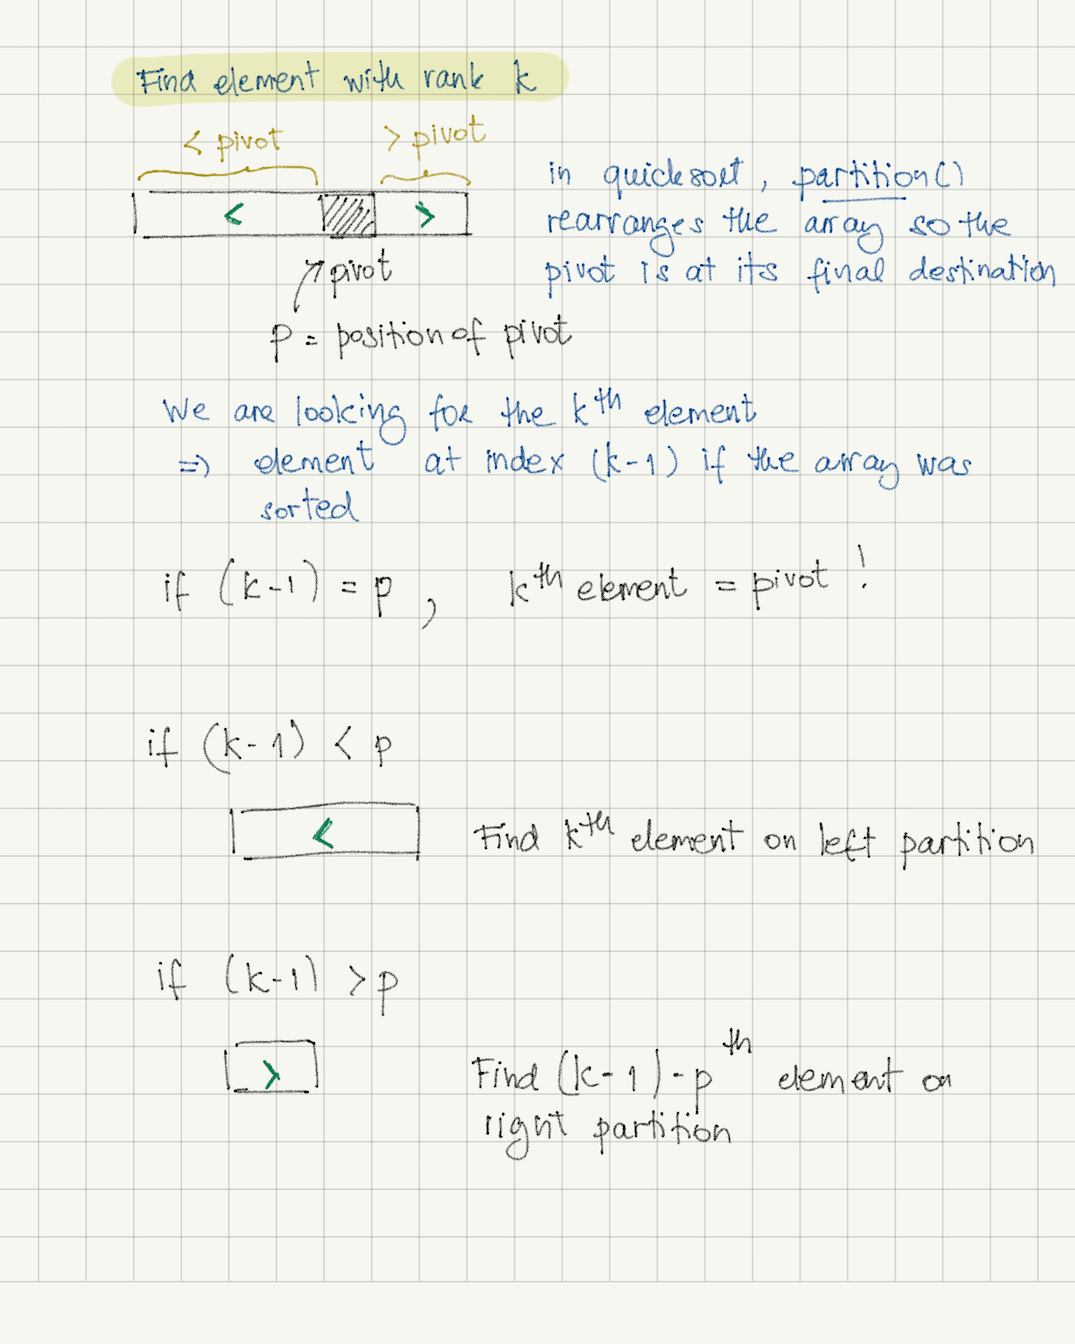 Find element with rank k
< pivot > pivot
< >
in quicksort, partition()
rearranges the array so the
pivot is at its final destination
pivot
p = position of pivot
We are looking for the kth element
=> element at index (k-1) if the array was
sorted
if (k-1) = p, kth element = pivot !
if (k-1) < p
<
Find kth element on left partition
if (k-1) > p
>
Find (k-1)-p th element on
right partition